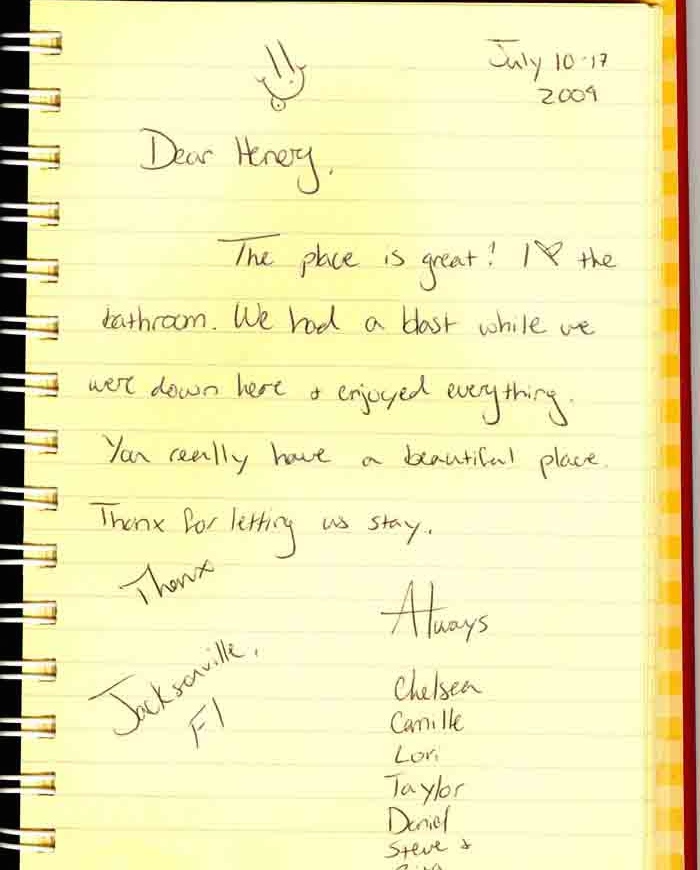 July 10-17
2009
Dear Henery,
The place is great! I ♡ the
bathroom. We had a blast while we
were down here & enjoyed everything.
You really have a beautiful place.
Thanx for letting us stay.
Thanx
Always
Jacksonville,
Fl
Chelsea
Camille
Lori
Taylor
Daniel
Steve &